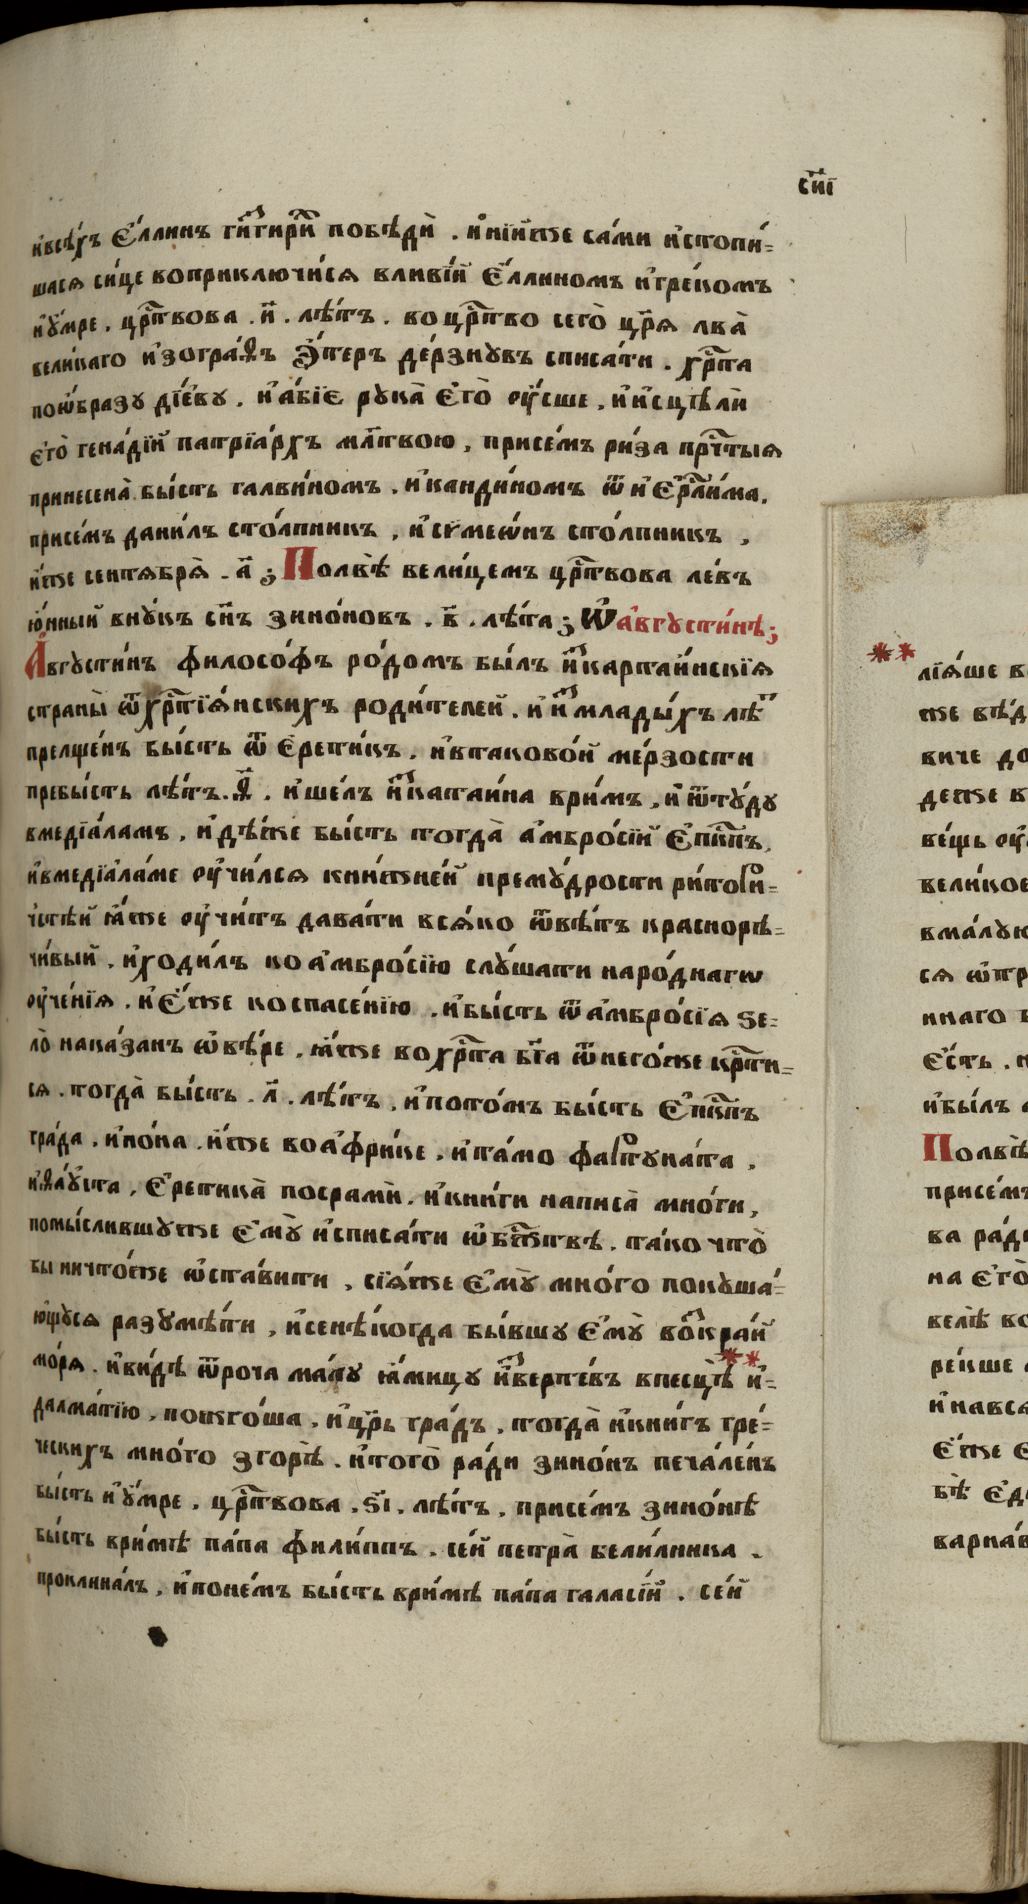 сн҃і
и҆всѣ́хъ є҆́ллинъ ги҆гири́и побѣдѝ . и҆ни́иже са́ми и҆стопи́-
шася си́це воприключи́ся вливі́и є҆́ллиномъ и҆гре́комъ
и҆ѹ҆́мре . црⷭ҇твова . и҃ . лѣ́тъ . во црⷭ҇тво сего̀ цр҃ѧ лва̀
вели́каго и҆зогра́ѳъ э҆́теръ де́рзнувъ списа́ти . хрⷭ҇та
поѡ҆́бразу ді́еву . и҆а҆́бїє рука̀ є҆гѡ̀ ѹ҆́сше , и҆и҆сцѣлѝ
є҆го̀ гена́дїй патрїа́рхъ мл҃твою , присе́мъ ри́за прⷱ҇тыя
принесена̀ бы́сть галви́номъ . и҆канди́номъ ѿ и҆є҆рⷭ҇ли́ма .
присе́мъ дани́лъ сто́лпникъ , и҆сѵмео́нъ сто́лпникъ ,
и҆́же сентябрѧ̀ . а҃ ; Полвѣ̀ вели́цемъ црⷭ҇твова ле́въ
ю҆́нный вну́къ сн҃ъ зино́новъ . в҃ . лѣ́та ; Ѡ а҆вгусти́нѣ ;
А҆вгусти́нъ филосо́фъ ро́домъ бы́лъ и҆ⷥкартаи́нскїя
страны̀ ѿхрⷭ҇тїя́нскихъ роди́телей . и҆и҆ⷥмлады́хъ лѣⷮ
прелще́нъ бы́сть ѿ є҆рети́къ . и҆втаково́й ме́рзости
пребы́сть лѣ́тъ . ѳ҃ . и҆ше́лъ и҆ⷥкатаи́наври́мъ , и҆ѿту́ду
вмедїа́ламъ , и҆дѣ́же бы́сть тогда̀ а҆мбро́сїй є҆пⷭ҇кпъ ,
и҆вмедїа́ла́ме ѹ҆чи́лся кни́жне́й прему́дрости ри́тори-
чстѣй ꙗ҆́же ѹ҆чи́тъ дава́ти вся́ко ѿвѣ́тъ краснорѣ-
чи́вый . и҆ходи́лъ ко а҆мбро́сїю слу́шати наро́днагѡ
ѹ҆че́нїя . и҆є҆́же коспасе́нїю . и҆бы́сть ѿа҆мбро́сїя ѕе-
ло̀ нака́занъ ѡ҆вѣ́ре . ꙗ҆́же во хрⷭ҇та бг҃а ѿнего́же крⷭ҇ти-
ся . тогда̀ бы́сть . л҃ . лѣ́тъ . и҆пото́мъ бы́сть є҆пⷭ҇кпъ
гра́да . и҆по́на . и҆́же во а҆́фрике . и҆та́мо фартуна́та .
и҆ѳа́уста , є҆ретика̀ посрамѝ . и҆кни́ги написа̀ мно́ги ,
помы́слившуже є҆му̀ и҆списа́ти ѡ҆бжⷭ҇твѣ . та́ко что̀
бы ничто́же ѡ҆ста́вити , сїя́же є҆му̀ мно́го покуша-
ющуся разумѣ́ти , и҆се нѣ́когда бы́вшу є҆му̀ воⷥкра́й
мо́ря . и҆ви́дѣ ѿроча ма́лу ꙗ҆́мицу и҆ⷥверте́въ впесцѣ̀ и҆-
далма́тїю , пожго́ша , и҆цр҃ь гра́дъ , тогда̀ и҆кни́гъ гре́-
ческихъ мно́го згорѣ̀ . и҆того̀ ра́ди зино́нъ печа́ле́нъ
бы́сть и҆ѹ҆́мре , црⷭ҇твова . ѕ҃і . лѣ́тъ , присе́мъ зино́нѣ
бы́сть ври́мѣ па́па фили́ппъ . се́й петра̀ бели́лника .
проклина́лъ , и҆поне́мъ бы́сть ври́мѣ па́па галасі́й . се́й
** лїя́ше
виче
вели́кое
инаго
є҆́сть
и҆бы́лъ
Полвѣ̀
присе́мъ
на є҆го̀
ре́кше
є҆́же